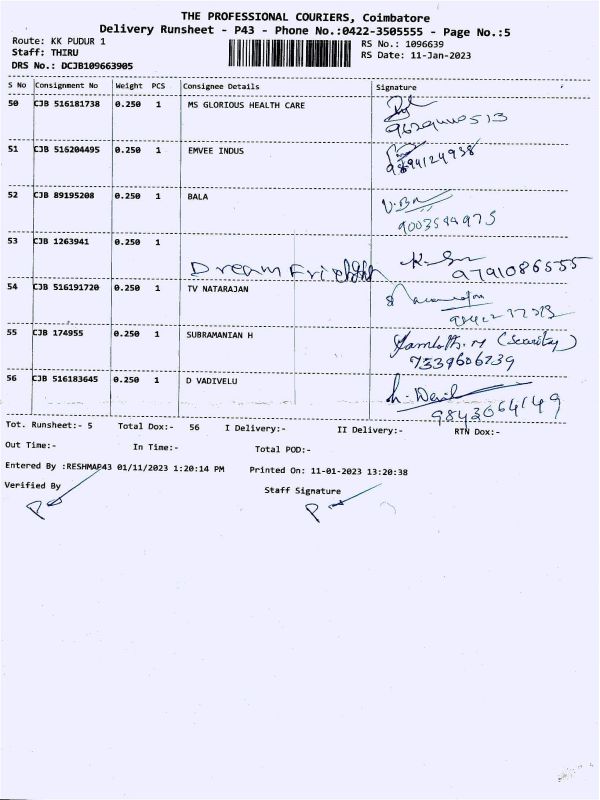 THE PROFESSIONAL COURIERS, Coimbatore
Delivery Runsheet - P43 - Phone No.:0422-3505555 - Page No.:5
Route: KK PUDUR 1 RS No.: 1096639
Staff: THIRU RS Date: 11-Jan-2023
DRS No.: DCJB109663905
S No Consignment No Weight PCS Consignee Details Signature
50 CJB 516181738 0.250 1 MS GLORIOUS HEALTH CARE
51 CJB 516204495 0.250 1 EMVEE INDUS
9894124938
52 CJB 89195208 0.250 1 BALA
9003594975
53 CJB 1263941 0.250 1
Dream 9791086555
54 CJB 516191720 0.250 1 TV NATARAJAN
55 CJB 174955 0.250 1 SUBRAMANIAN H (Security)
7339606239
56 CJB 516183645 0.250 1 D VADIVELU
9843064149
Tot. Runsheet:- 5 Total Dox:- 56 I Delivery:- II Delivery:- RTN Dox:-
Out Time:- In Time:- Total POD:-
Entered By :RESHMAP43 01/11/2023 1:20:14 PM Printed On: 11-01-2023 13:20:38
Verified By Staff Signature